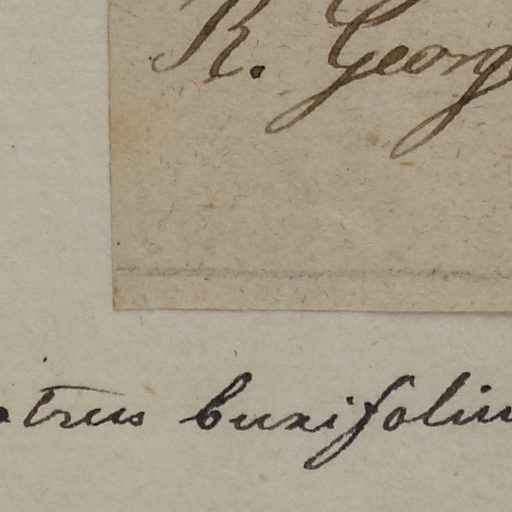 R. Georg
trus buxifoliu